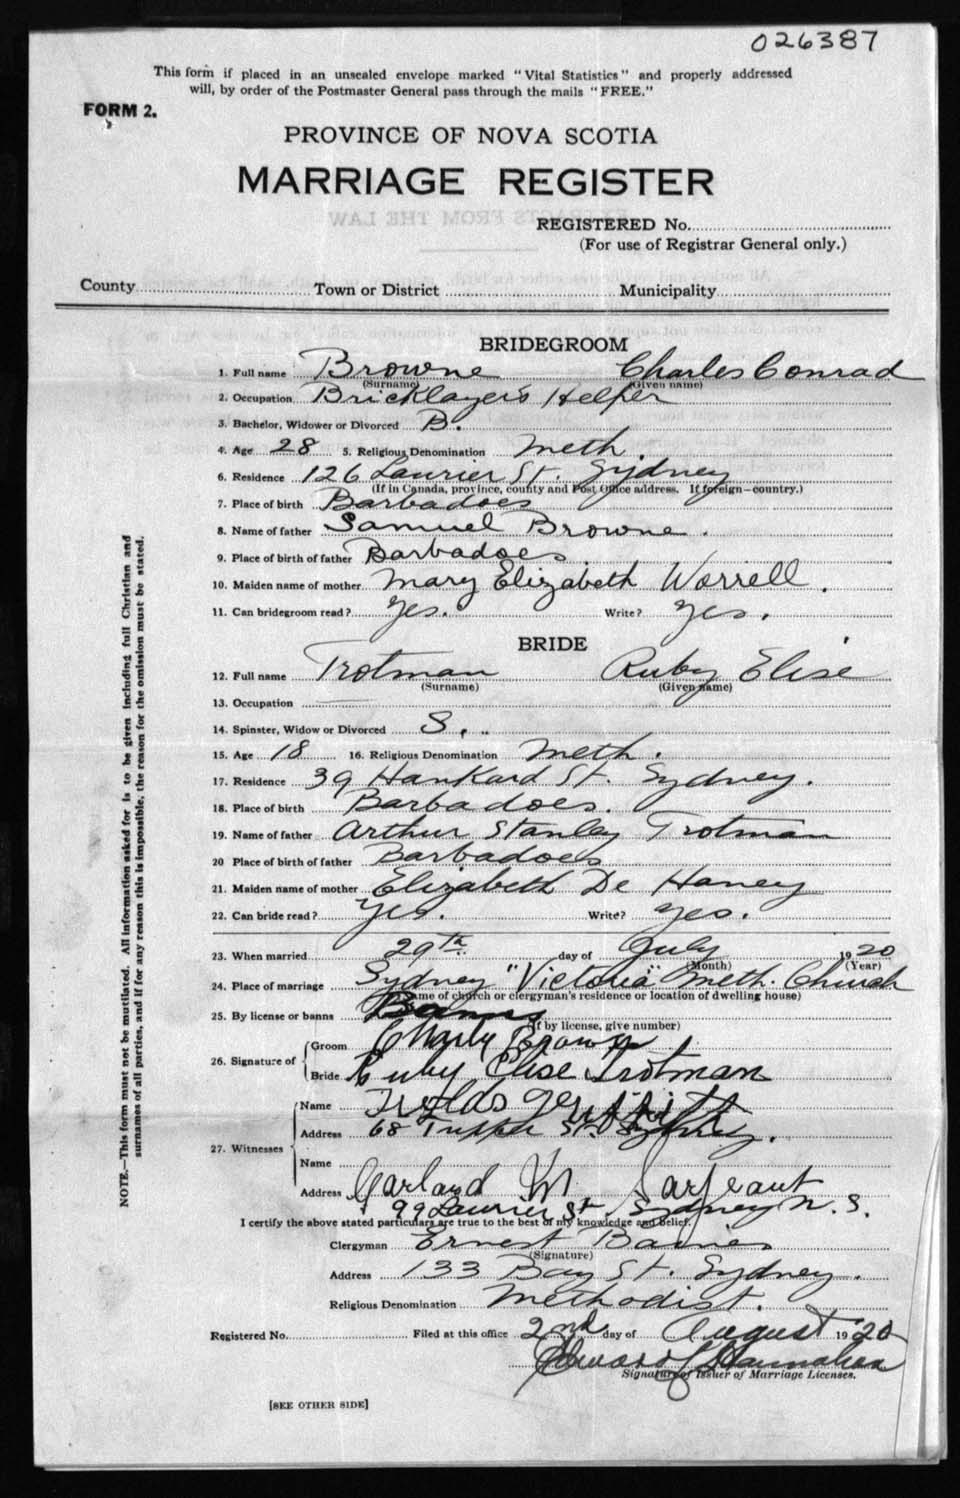 026387
This form if placed in an unsealed envelope marked "Vital Statistics" and properly addressed
will, by order of the Postmaster General pass through the mails "FREE."
FORM 2.
PROVINCE OF NOVA SCOTIA
MARRIAGE REGISTER
REGISTERED No.
(For use of Registrar General only.)
County Town or District Municipality
BRIDEGROOM
1. Full name Browne Charles Conrad
(Surname) (Given name)
2. Occupation Bricklayer's Helper
3. Bachelor, Widower or Divorced B.
4. Age 28 5. Religious Denomination Meth.
6. Residence 126 Laurier St. Sydney
(If in Canada, province, county and Post Office address. If foreign—country.)
7. Place of birth Barbadoes
8. Name of father Samuel Browne.
9. Place of birth of father Barbadoes
10. Maiden name of mother Mary Elizabeth Worrell.
11. Can bridegroom read? yes. Write? yes.
BRIDE
12. Full name Trotman Ruby Elise
(Surname) (Given name)
13. Occupation
14. Spinster, Widow or Divorced S.
15. Age 18 16. Religious Denomination Meth.
17. Residence 39 Hankard St. Sydney.
18. Place of birth Barbadoes.
19. Name of father Arthur Stanley Trotman
20 Place of birth of father Barbadoes
21. Maiden name of mother Elizabeth De Haney
22. Can bride read? yes. Write? yes.
23. When married 29th day of July 1920
(Month) (Year)
24. Place of marriage Sydney "Victoria" Meth. Church
(Name of church or clergyman's residence or location of dwelling house)
25. By license or banns Banns
(If by license, give number)
26. Signature of
Groom Charly Brown
Bride Ruby Elise Trotman
27. Witnesses
Name
Address 68 Tupper St. Sydney.
Name
Address Garland M Sargeant
99 Laurier St Sydney N. S.
I certify the above stated particulars are true to the best of my knowledge and belief.
Clergyman Ernest Barnes
(Signature)
Address 133 Bay St. Sydney.
Religious Denomination Methodist.
Registered No. Filed at this office 2nd day of August 1920
Signature of Issuer of Marriage Licenses.
[SEE OTHER SIDE]
NOTE.—This form must not be mutilated. All information asked for is to be given including full Christian and
surnames of all parties, and if for any reason this is impossible, the reason for the omission must be stated.